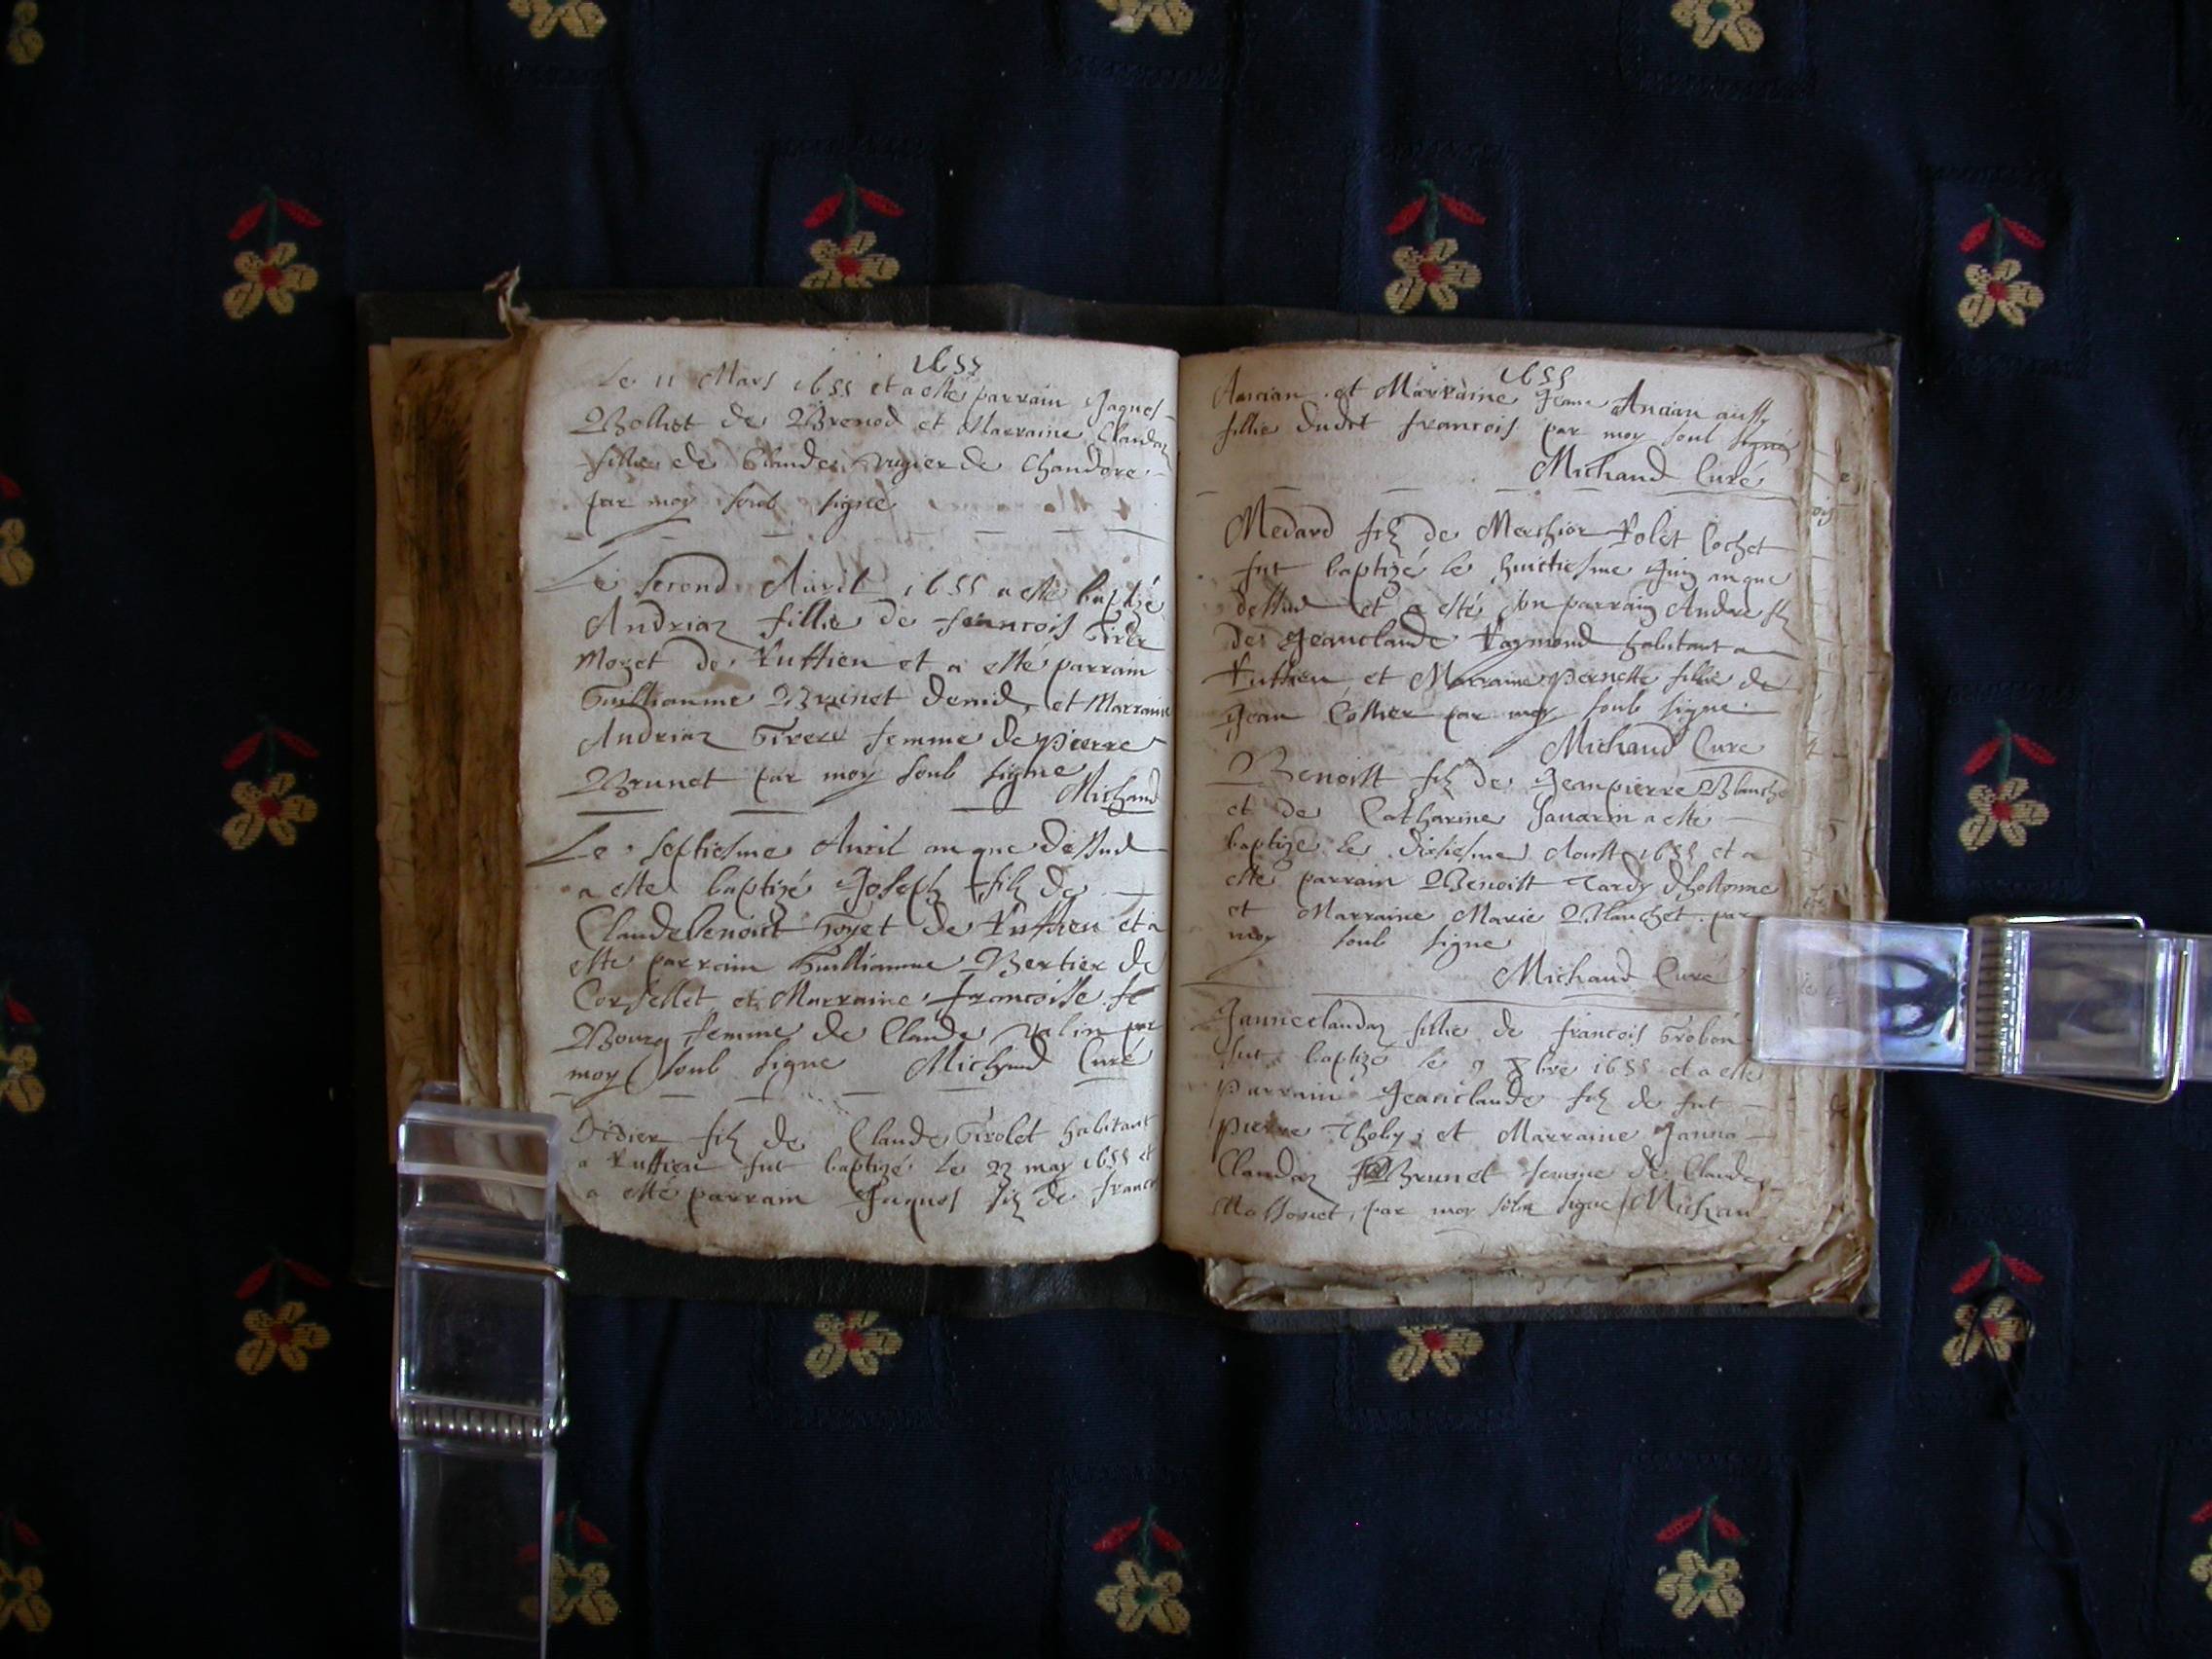 1655
Le 11 Mars 1655 et a esté parrain Jaques
Bolliet de Brenod et Marraine Claudaz
fillie de Claude Mugier de Chandore
par moy soub signé
Le second Auril 1655 a esté baptizé
Andriaz fillie de francois Tirer
Moget de Ruffieu et a esté parrain
Guilliaume Brunet demid et Marraine
Andriaz femme de pierre
Brunet par moy soub signe
Michaud
Le septiesme Auril an que dessud
a esté baptizé Joseph filz de
Claudebenoict Goyet de Ruffieu et a
esté parrain Guilliaume Bertier de
Corsellet et Marraine francoise
Bourg femme de Claude par
moy soub signe Michaud Curé
Didier filz de Claude Girolet habitant
a Ruffieu fut baptizé le 22 may 1655 et
a esté parrain Jaques filz de francois
1655
Ancian et Marraine Jeane Ancian aussy
fillie dudit francois par moy soub signé
Michaud Curé
Medard filz de Merchior Rolet Cochet
fut baptizé le huictiesme Juin an que
dessud et a esté son parrain Andre filz
de Jeanclaude Raymond habitant a
Ruffieu et Marraine pernette fillie de
Jean Cottier par moy soub signe
Michaud Cure
Benoist filz de Jeanpierre Blanchet
et de Catharine Sauarin a esté
baptizé le dixiesme Aoust 1655 et a
esté parrain Benoist Tardy d'hostonne
et Marraine Marie Blanchet par
moy soub signe
Michaud Curé
Janneclaudaz fillie de francois Trobon
fut baptizé le 9 Xbre 1655 et a esté
parrain Jeanclaude filz de fut
pierre Thoby et Marraine Janna
Claudaz Brunet femme de Claude
Massonet, par moy soub signe Michaud